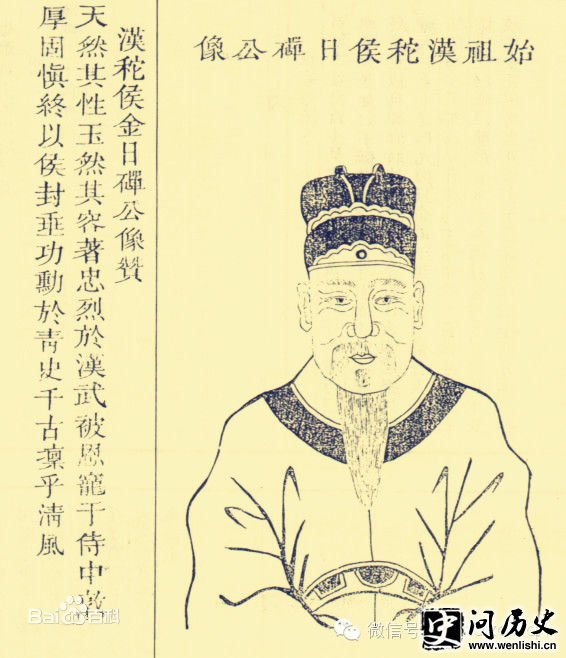 始祖漢秺侯日磾公像
漢秺侯金日磾公像贊
天然其性玉然其容著忠烈於漢武被恩寵于侍中
厚固慎終以侯封垂功勳於青史千古凜乎清風
Bai百科
微信号
问历史
www.wenlishi.cn